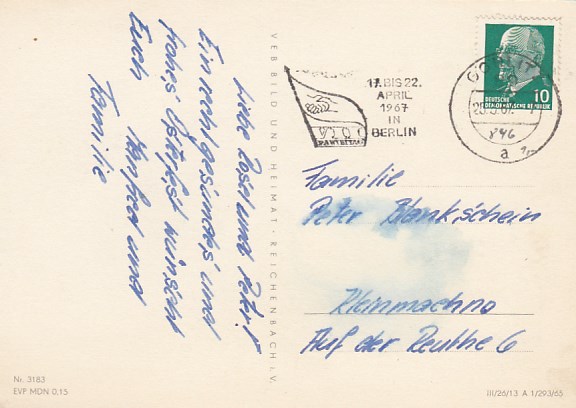 Liebe Rosel und Peter!
Ein recht gesundes und
frohes Osterfest wünscht
Euch Manfred und
Familie
VEB BILD UND HEIMAT · REICHENBACH i. V.
17. BIS 22.
APRIL
1967
IN
BERLIN
VII.
PARTEITAG
GÖRLITZ
846
a
DEUTSCHE
DEMOKRATISCHE REPUBLIK
10
Familie
Peter Blankschein
Kleinmachno
Auf der Reuthe 6
Nr. 3183
EVP MDN 0,15
III/26/13 A 1/293/65